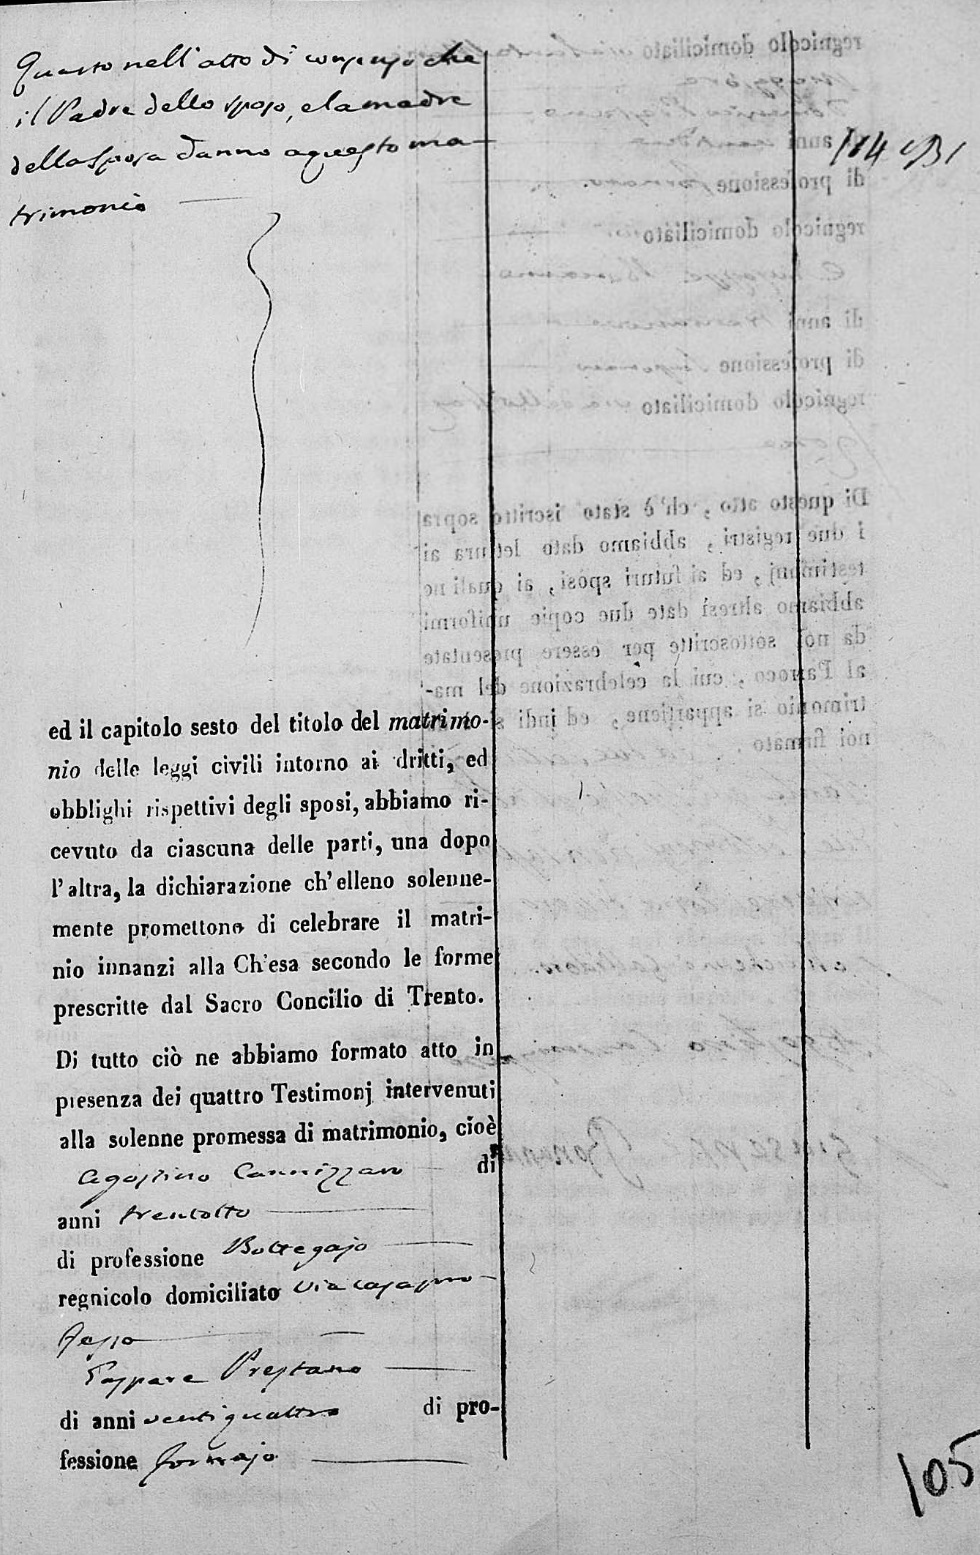 Quarto nell'atto di consenso che
il Padre dello sposo, e la madre
della Sposa danno a questo ma-
trimonio
ed il capitolo sesto del titolo del matrimo-
nio delle leggi civili intorno ai dritti, ed
obblighi rispettivi degli sposi, abbiamo ri-
cevuto da ciascuna delle parti, una dopo
l'altra, la dichiarazione ch'elleno solenne-
mente promettono di celebrare il matri-
nio innanzi alla Ch'esa secondo le forme
prescritte dal Sacro Concilio di Trento.
Di tutto ciò ne abbiamo formato atto in
presenza dei quattro Testimonj intervenuti
alla solenne promessa di matrimonio, cioè
Agostino Cannizzaro di
anni trentotto
di professione Bottegajo
regnicolo domiciliato via casa pro-
fessa
Gaspare Prestano
di anni ventiquattro di pro-
fessione fornajo
105